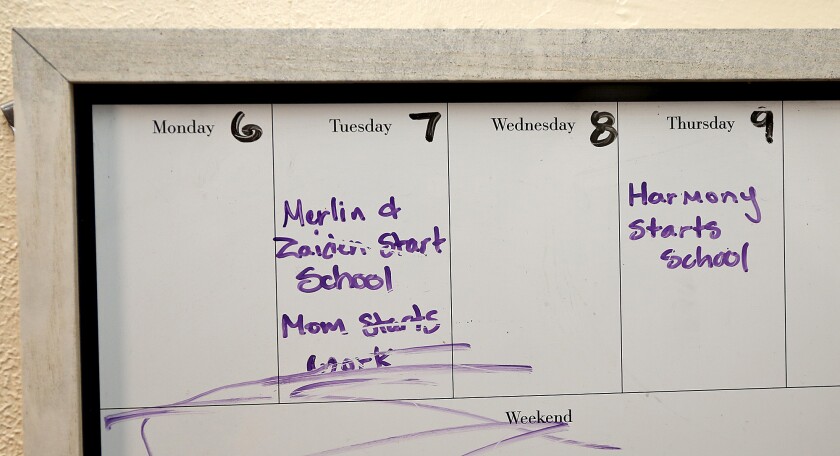 Monday 6 Tuesday 7 Wednesday 8 Thursday 9
Merlin &
Zaiden Start
School
Mom Starts
work
Harmony
Starts
School
Weekend